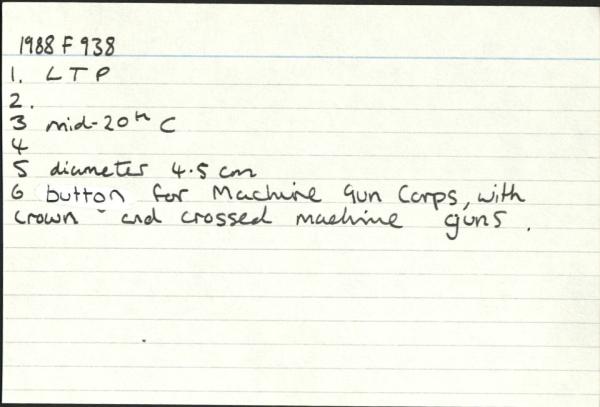 1988 F 938
1. LTP
2.
3 mid-20th C
4
5 diameter 4.5 cm
6 button for Machine Gun Corps, with
crown and crossed machine guns.